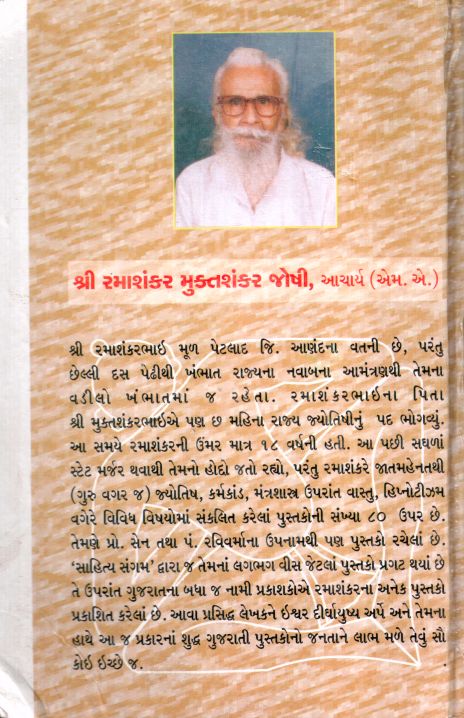 શ્રી રમાશંકર મુક્તશંકર જોષી, આચાર્ય (એમ. એ.)
શ્રી રમાશંકરભાઇ મૂળ પેટલાદ જિ. આણંદના વતની છે, પરંતુ
છેલ્લી દસ પેઢીથી ખંભાત રાજ્યના નવાબના આમંત્રણથી તેમના
વડીલો ખંભાતમાં જ રહેતા. રમાશંકરભાઇના પિતા
શ્રી મુક્તશંકરભાઈએ પણ છ મહિના રાજ્ય જ્યોતિષીનું પદ ભોગવ્યું.
આ સમયે રમાશંકરની ઉંમર માત્ર ૧૮ વર્ષની હતી. આ પછી સઘળાં
સ્ટેટ મર્જર થવાથી તેમનો હોદ્દો જતો રહ્યો, પરંતુ રમાશંકરે જાતમહેનતથી
(ગુરુ વગર જ) જ્યોતિષ, કર્મકાંડ, મંત્રશાસ્ત્ર ઉપરાંત વાસ્તુ, હિપ્નોટીઝમ
વગેરે વિવિધ વિષયોમાં સંકલિત કરેલાં પુસ્તકોની સંખ્યા ૮૦ ઉપર છે.
તેમણે પ્રો. સેન તથા પં. રવિવર્માના ઉપનામથી પણ પુસ્તકો રચેલાં છે.
‘સાહિત્ય સંગમ’ દ્વારા જ તેમનાં લગભગ વીસ જેટલાં પુસ્તકો પ્રગટ થયાં છે
તે ઉપરાંત ગુજરાતના બધા જ નામી પ્રકાશકોએ રમાશંકરના અનેક પુસ્તકો
પ્રકાશિત કરેલાં છે. આવા પ્રસિદ્ધ લેખકને ઇશ્વર દીર્ઘાયુષ્ય અર્પે અને તેમના
હાથે આ જ પ્રકારનાં શુદ્ધ ગુજરાતી પુસ્તકોનો જનતાને લાભ મળે તેવું સૌ
કોઇ ઇચ્છે જ.